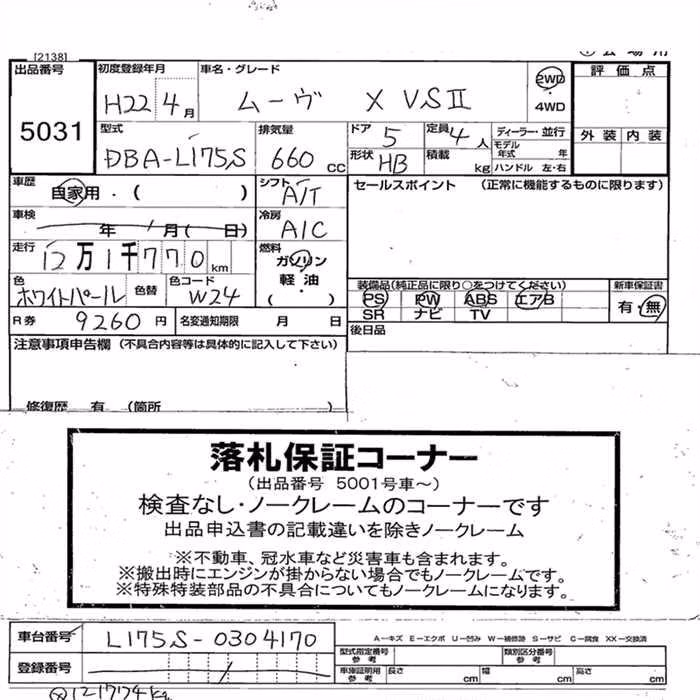 [2138]
出品番号 5031
初度登録年月 H22 4月
車名・グレード ムーヴ X VSⅡ
2WD
4WD
評価点
外装 内装
型式 DBA-L175S
排気量 660 CC
ドア 5
定員 4人
ディーラー・並行
モデル年式 年
形状 HB
積載 kg
ハンドル 左・右
車歴 自家用・( )
シフト A/T
セールスポイント (正常に機能するものに限ります)
車検 年 月( 日)
冷房 A/C
走行 12万1千770km
燃料 ガソリン・軽油
( )
色 ホワイトパール
色替
色コード W24
装備品(純正品に限り○をつけてください)
新車保証書
PS PW ABS エアB
有・無
SR ナビ TV
R券 9260円
名変通知期限 月 日
後日品
注意事項申告欄 (不具合内容等は具体的に記入して下さい)
修復歴 有 (箇所 )
落札保証コーナー
(出品番号 5001号車~)
検査なし・ノークレームのコーナーです
出品申込書の記載違いを除きノークレーム
※不動車、冠水車など災害車も含まれます。
※搬出時にエンジンが掛からない場合でもノークレームです。
※特殊特装部品の不具合についてもノークレームになります。
車台番号 L175S-0304170
A-キズ E-エクボ U-凹み W-補修跡 S-サビ C-腐食 XX-交換済
登録番号
型式指定番号 参考
類別区分番号 参考
車庫証明用 参考 長さ cm 幅 cm 高さ cm